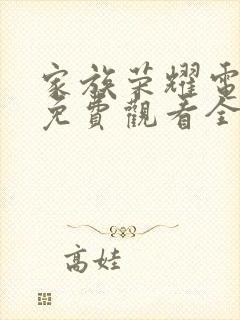 家族荣耀電
免費觀看全
高娃